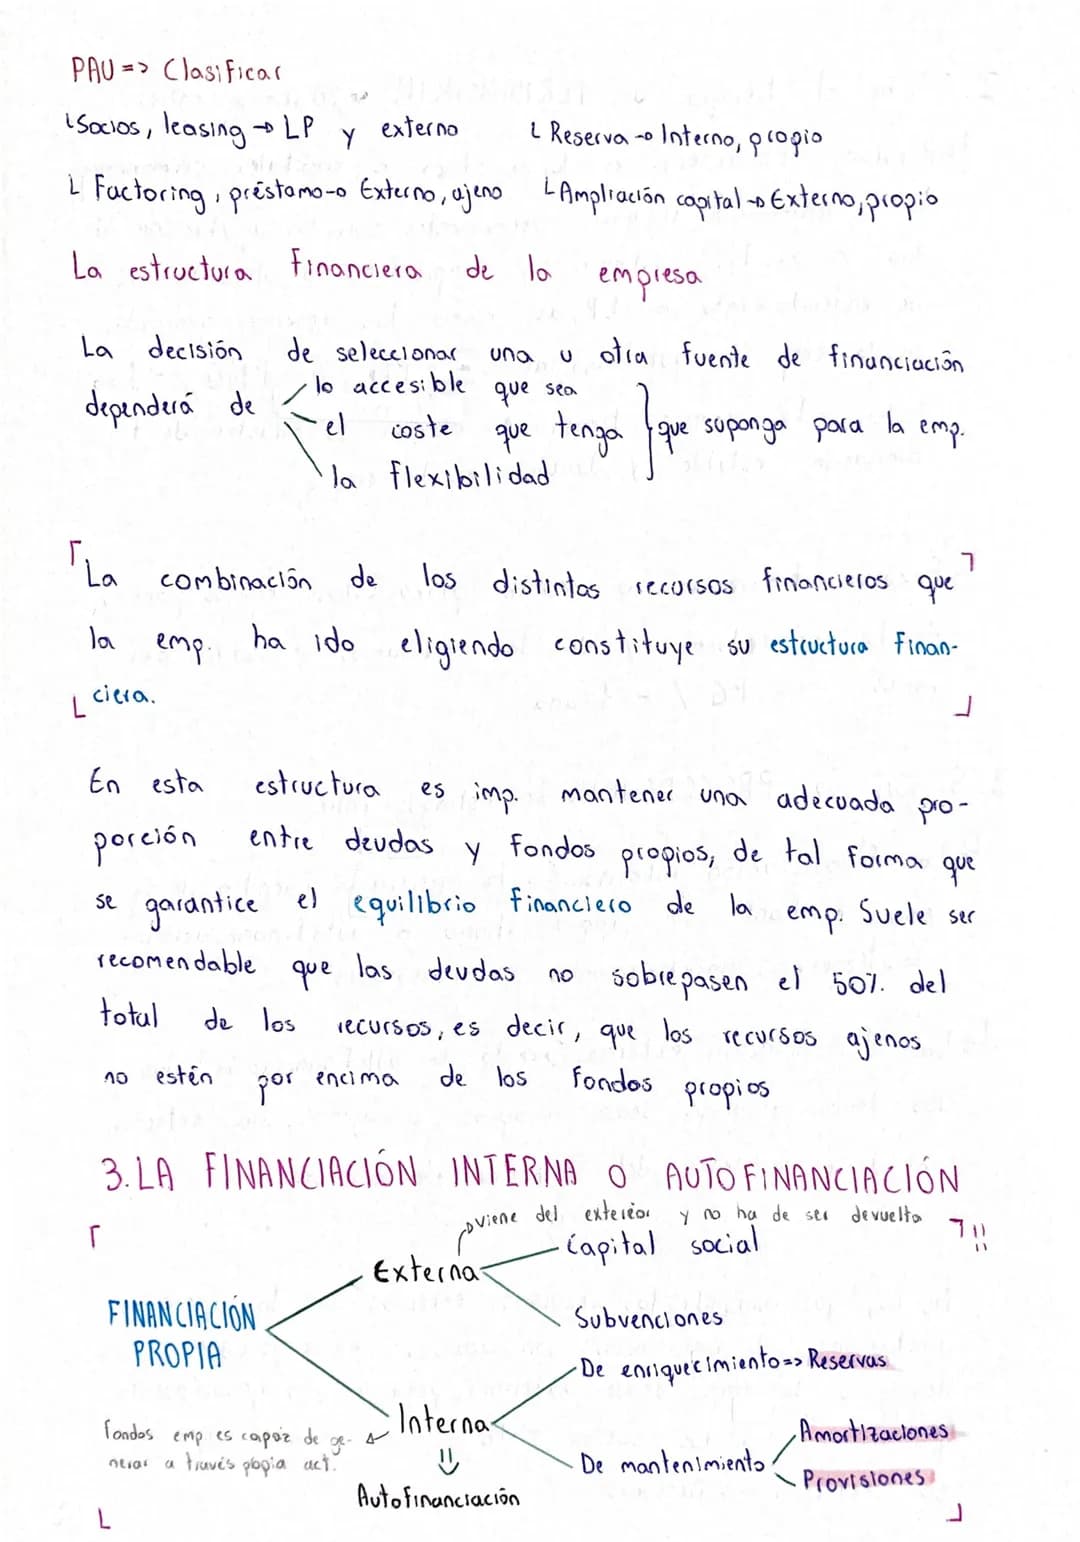 PAU => Clasificar
└ Socios, leasing → LP y externo
└ Reserva → Interno, propio
└ Factoring, préstamo → Externo, ajeno
└ Ampliación capital → Externo, propio
La estructura financiera de la empresa
La decisión de seleccionar una u otra fuente de financiación
dependerá de
lo accesible que sea
el coste que tenga
la flexibilidad
que suponga para la emp.
La combinación de los distintos recursos financieros que
la emp. ha ido eligiendo constituye su estructura finan-
ciera.
En esta estructura es imp. mantener una adecuada pro-
porción entre deudas y fondos propios, de tal forma que
se garantice el equilibrio financiero de la emp. Suele ser
recomendable que las deudas no sobrepasen el 50% del
total de los recursos, es decir, que los recursos ajenos
no estén por encima de los fondos propios
3. LA FINANCIACIÓN INTERNA O AUTOFINANCIACIÓN
viene del exterior y no ha de ser devuelto
!!
Externa
Capital social
Subvenciones
FINANCIACIÓN
PROPIA
De enriquecimiento => Reservas
Interna
fondos emp es capaz de ge-
nerar a través propia act.
⇓
Autofinanciación
De mantenimiento
Amortizaciones
Provisiones